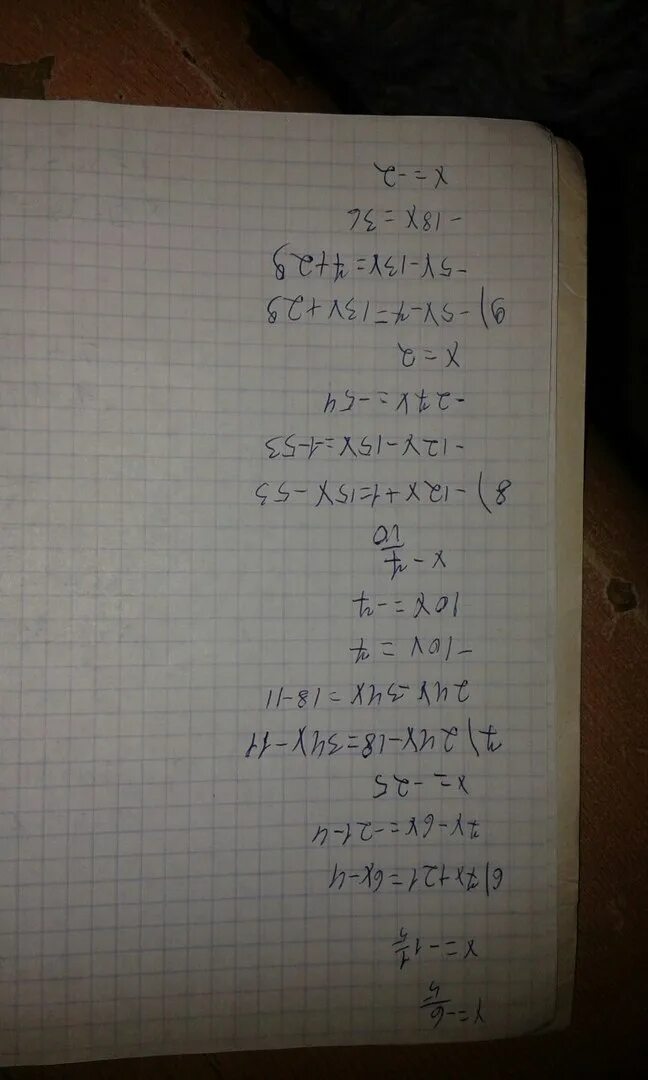 x=-6/5
x=-1 1/5
6) 7x+21=6x-4
7x-6x=-21-4
x=-25
7) 24x-18=34x-11
24x-34x=18-11
-10x=7
10x=-7
x-7/10
8) -12x+1=15x-53
-12x-15x=-1-53
-27x=-54
x=2
9) -5x-7=13x+29
-5x-13x=7+29
-18x=36
x=-2